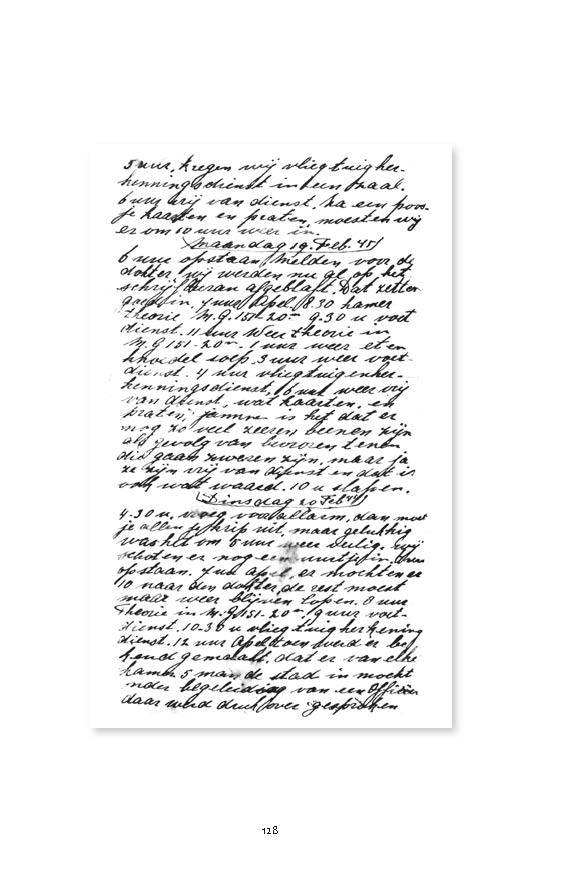 5 uur, kregen wij vliegtuigher-
kenningsdienst in een zaal.
6 uur vrij van dienst. Na een poos-
je kaarten en praten, moesten wij
er om 10 uur weer in.
Maandag 19. Feb. 45
6 uur opstaan, melden voor de
dokter, wij werden nu al op het
schrijf afgeblaft. Dat zetten
in. 7 uur Apel. 8.30 kamer
theorie M.G. 151-20 9.30 u voet
dienst. 11 uur Weer theorie in
M.G 151-20. 1 uur weer eten
soep. 3 uur weer voet-
dienst. 4 uur vliegtuigenher-
kenningsdienst. 6 uur weer vrij
van dienst, wat kaarten, en
praten, jammer is het dat er
nog zo veel zeeren beenen zijn
als gevolg van bevroren tenen
die gaan zweren zijn, maar ja
ze zijn vrij van dienst en dat is
ook wat waard. 10 u slapen.
Dinsdag 20 Feb
4.30 u. vroeg vooallarm, dan moet
je allen je krip uit, maar gelukkig
was het om 5 uur weer veilig. wij
schoten er nog een uurtje in,
opstaan. 7 uur apel, er mochten er
10 naar den dokter, de rest moest
maar weer blijven lopen. 8 uur
Theorie in M.G. 151-20 9 uur voet-
dienst. 10.30 u vliegtuigherkening
dienst. 12 uur Apel toen werd er be
kend gemaakt, dat er van elke
kamer 5 man de stad in mocht
onder begeleiding van een Officier
daar werd druk over gesproken
128